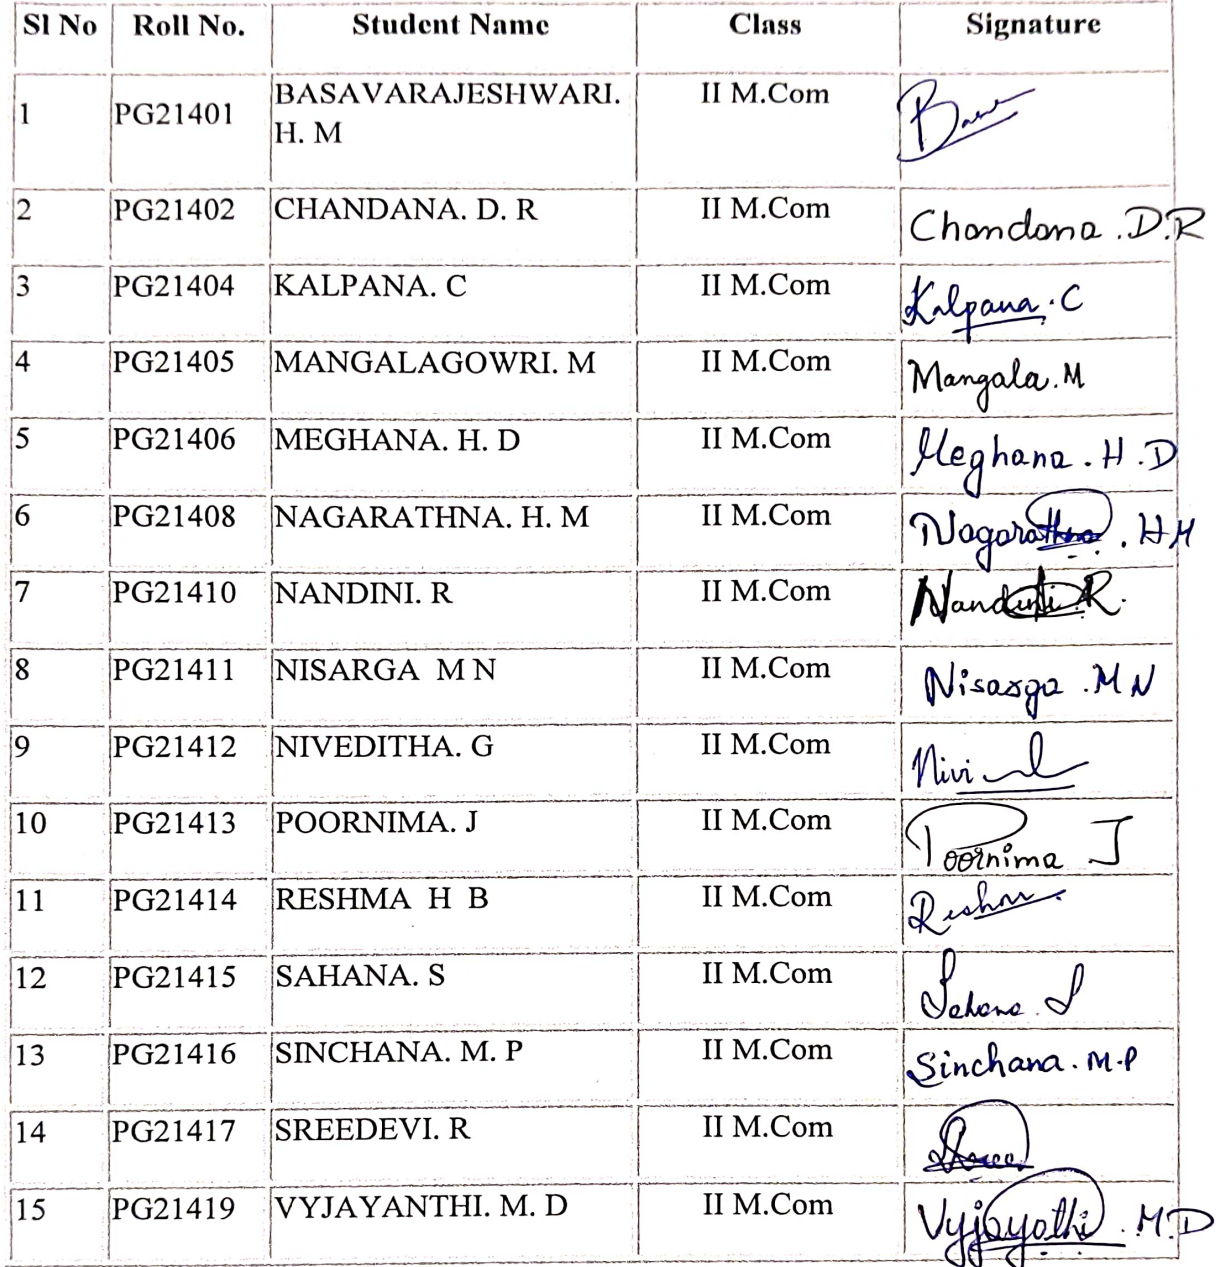 Sl No Roll No. Student Name Class Signature
1 PG21401 BASAVARAJESHWARI. II M.Com
H. M
2 PG21402 CHANDANA. D. R II M.Com Chandana .D.R
3 PG21404 KALPANA. C II M.Com Kalpana.C
4 PG21405 MANGALAGOWRI. M II M.Com Mangala.M
5 PG21406 MEGHANA. H. D II M.Com Meghana.H.D
6 PG21408 NAGARATHNA. H. M II M.Com Nagarathna.HM
7 PG21410 NANDINI. R II M.Com Nandini.R.
8 PG21411 NISARGA M N II M.Com Nisarga.MN
9 PG21412 NIVEDITHA. G II M.Com Nivi
10 PG21413 POORNIMA. J II M.Com Poornima J
11 PG21414 RESHMA H B II M.Com
12 PG21415 SAHANA. S II M.Com Sahana S
13 PG21416 SINCHANA. M. P II M.Com Sinchana.M.P
14 PG21417 SREEDEVI. R II M.Com
15 PG21419 VYJAYANTHI. M. D II M.Com Vyjayothi.M.D